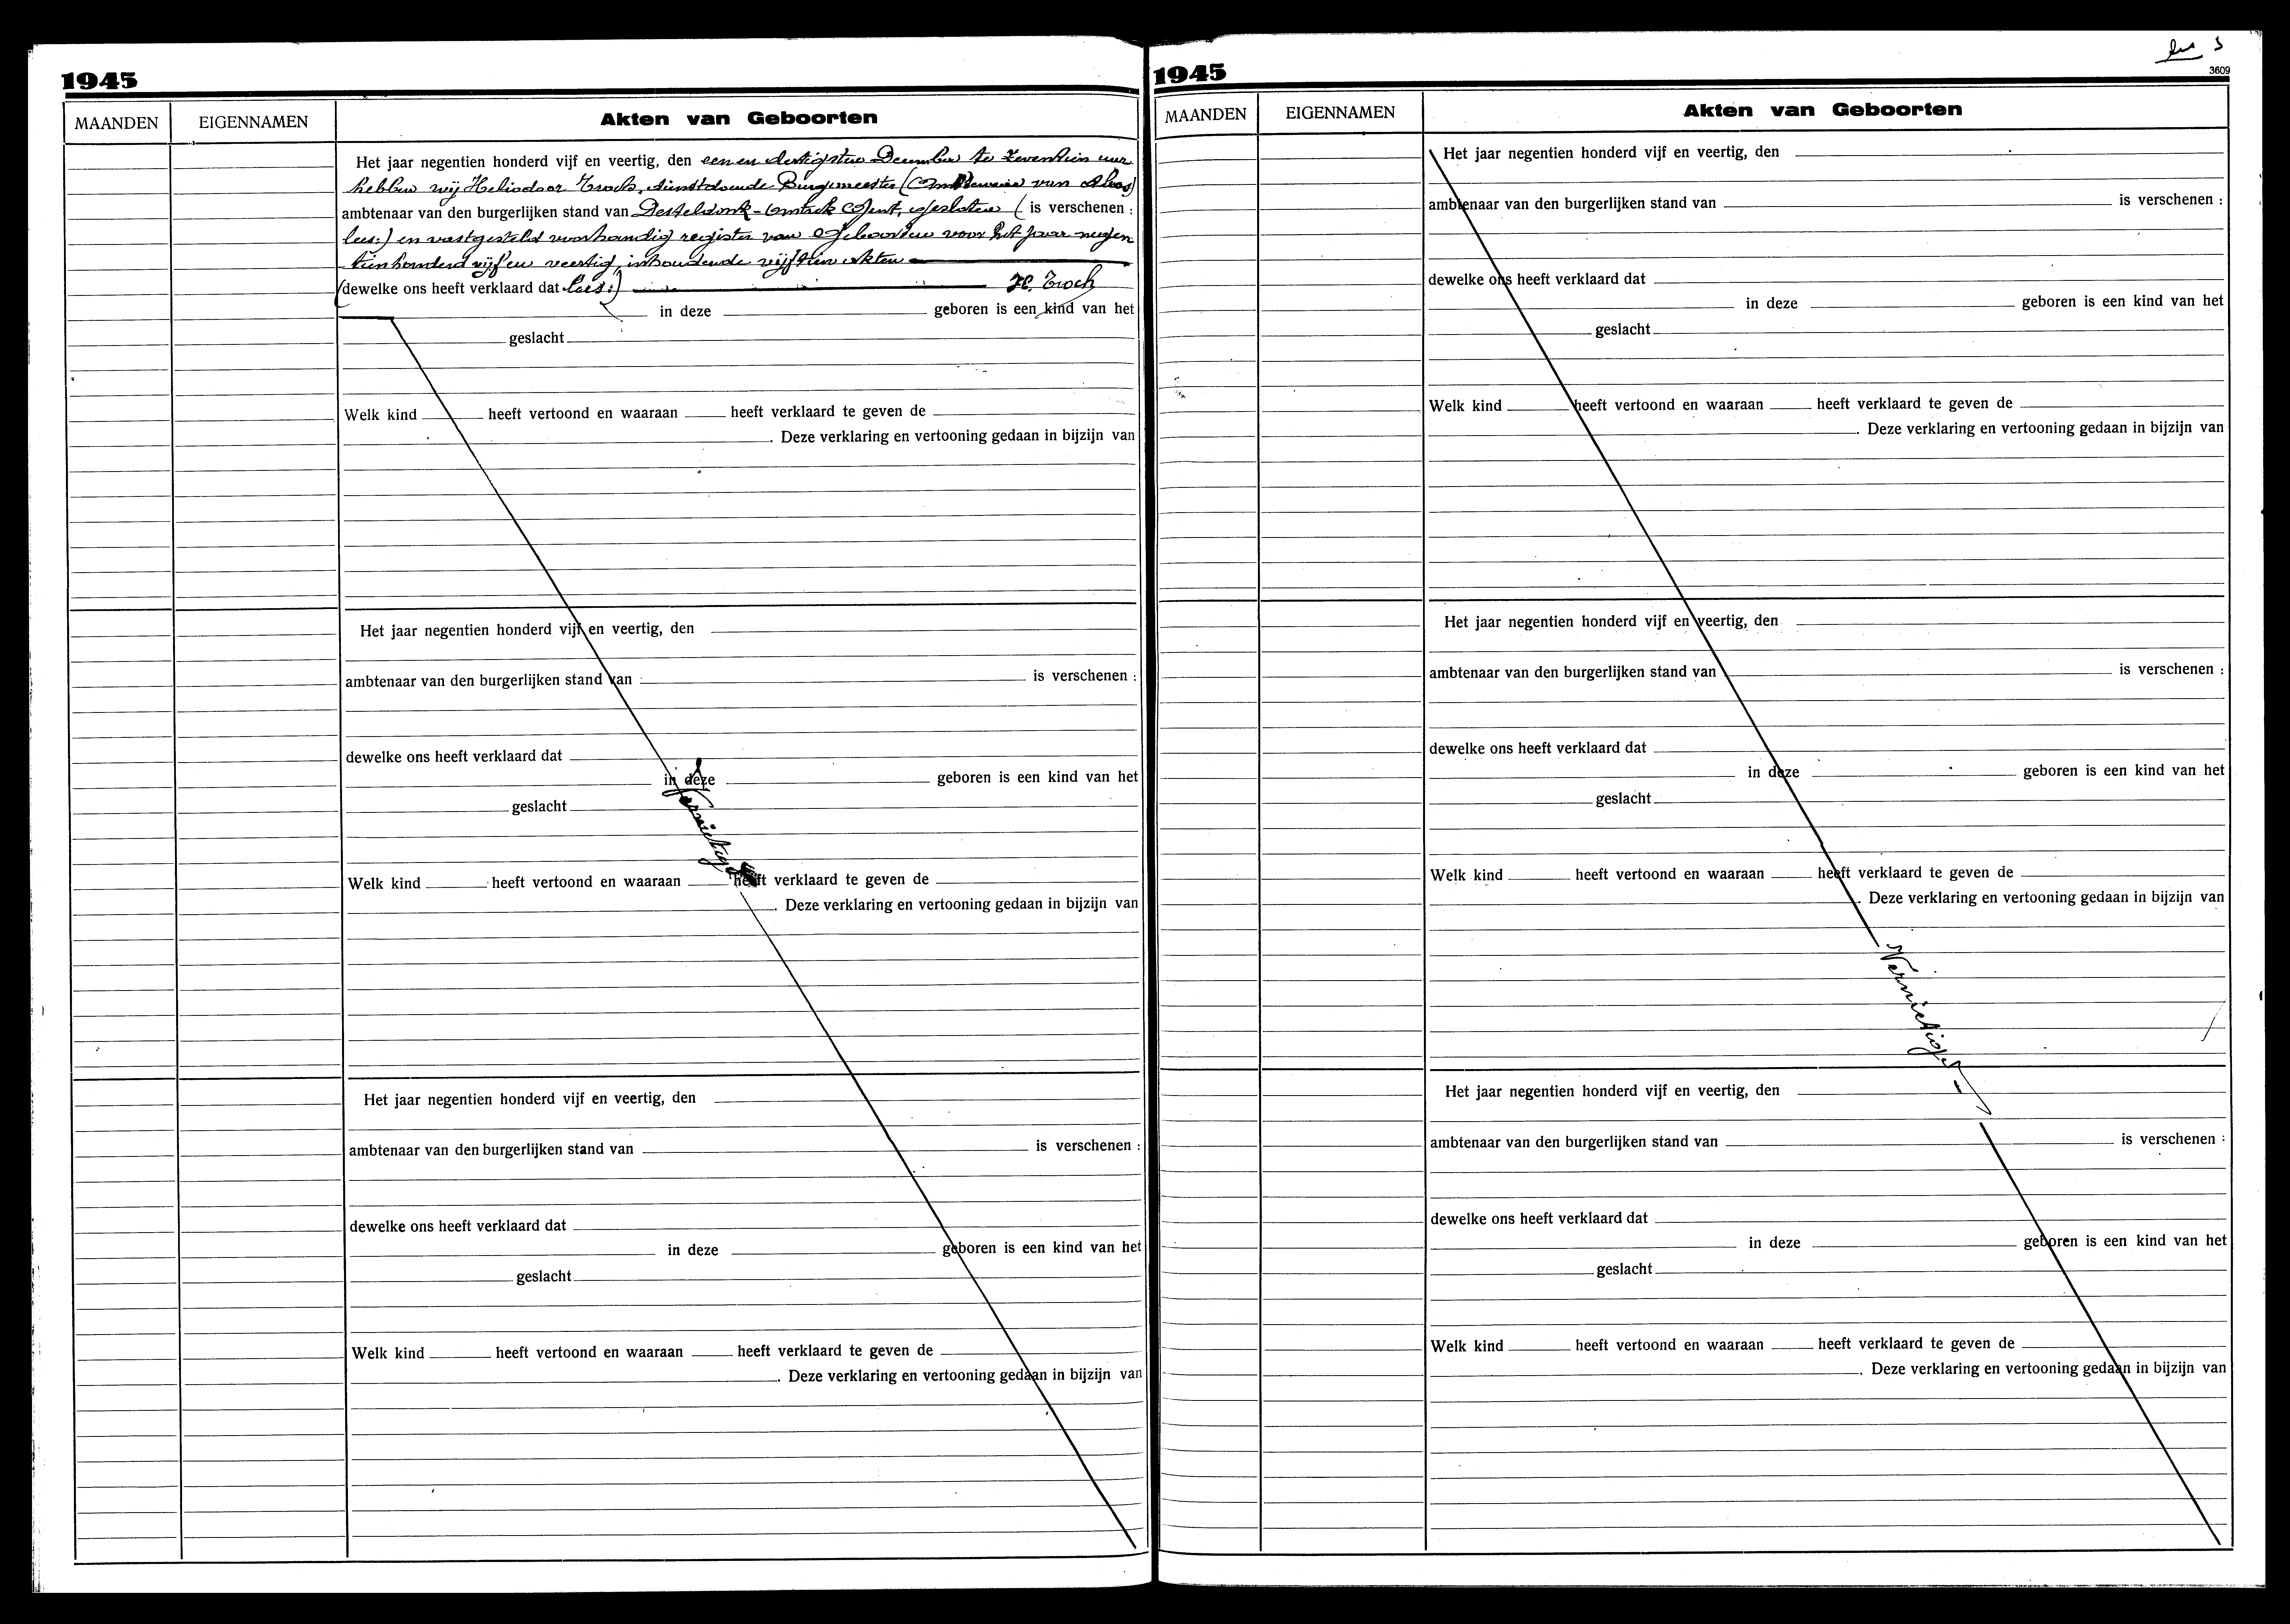 1945
MAANDEN EIGENNAMEN Akten van Geboorten
Het jaar negentien honderd vijf en veertig, den eenen dertigsten December te zeventien uur
hebben wij Heliodoor Troch, dienstdoende Burgemeester (
ambtenaar van den burgerlijken stand van Desteldonk - Gent, gesloten ( is verschenen :
lees:) en vastgesteld voorhandig register van Geboorten voor het jaar negen
tienhonderd vijf en veertig, inhoudende vijftien akten
(dewelke ons heeft verklaard dat lees:) H. Troch
in deze geboren is een kind van het
geslacht
Welk kind heeft vertoond en waaraan heeft verklaard te geven de
. Deze verklaring en vertooning gedaan in bijzijn van
Het jaar negentien honderd vijf en veertig, den
ambtenaar van den burgerlijken stand van is verschenen :
dewelke ons heeft verklaard dat
in deze geboren is een kind van het
geslacht
Vernietigd
Welk kind heeft vertoond en waaraan heeft verklaard te geven de
. Deze verklaring en vertooning gedaan in bijzijn van
Het jaar negentien honderd vijf en veertig, den
ambtenaar van den burgerlijken stand van is verschenen :
dewelke ons heeft verklaard dat
in deze geboren is een kind van het
geslacht
Welk kind heeft vertoond en waaraan heeft verklaard te geven de
. Deze verklaring en vertooning gedaan in bijzijn van
1945
3609
MAANDEN EIGENNAMEN Akten van Geboorten
Het jaar negentien honderd vijf en veertig, den
ambtenaar van den burgerlijken stand van is verschenen :
dewelke ons heeft verklaard dat
in deze geboren is een kind van het
geslacht
Welk kind heeft vertoond en waaraan heeft verklaard te geven de
. Deze verklaring en vertooning gedaan in bijzijn van
Het jaar negentien honderd vijf en veertig, den
ambtenaar van den burgerlijken stand van is verschenen :
dewelke ons heeft verklaard dat
in deze geboren is een kind van het
geslacht
Welk kind heeft vertoond en waaraan heeft verklaard te geven de
. Deze verklaring en vertooning gedaan in bijzijn van
Vernietigd
Het jaar negentien honderd vijf en veertig, den
ambtenaar van den burgerlijken stand van is verschenen :
dewelke ons heeft verklaard dat
in deze geboren is een kind van het
geslacht
Welk kind heeft vertoond en waaraan heeft verklaard te geven de
. Deze verklaring en vertooning gedaan in bijzijn van